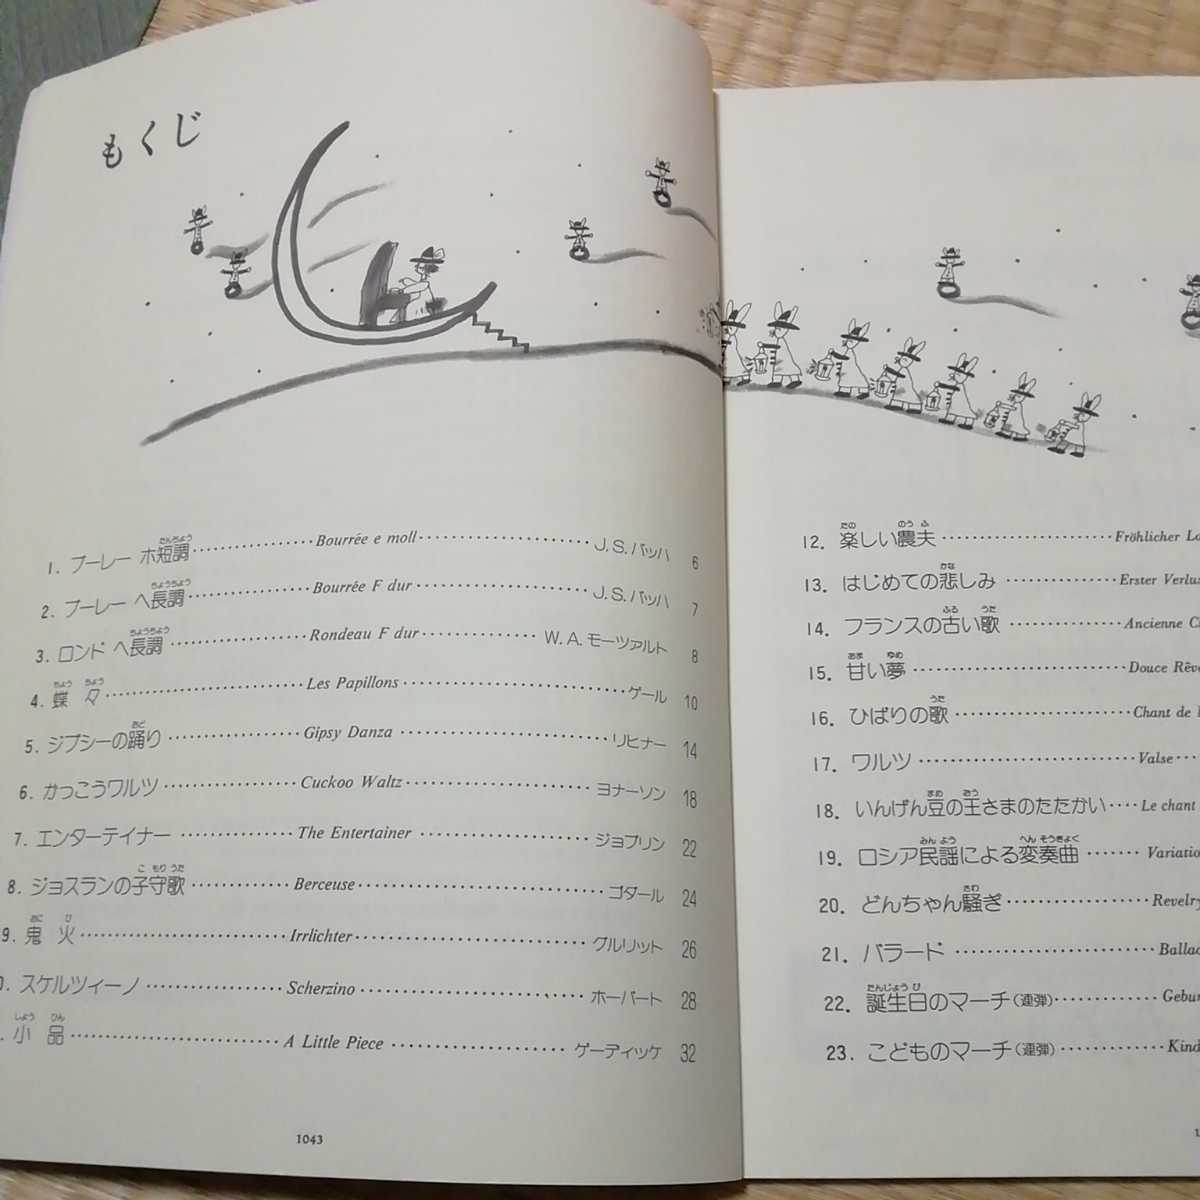 もくじ
1. ブーレー ホ短調 Bourrée e moll J.S.バッハ 6
2. ブーレー ヘ長調 Bourrée F dur J.S.バッハ 7
3. ロンド ヘ長調 Rondeau F dur W.A.モーツァルト 8
4. 蝶々 Les Papillons ゲール 10
5. ジプシーの踊り Gipsy Danza リヒナー 14
6. かっこうワルツ Cuckoo Waltz ヨナーソン 18
7. エンターテイナー The Entertainer ジョプリン 22
8. ジョスランの子守歌 Berceuse ゴダール 24
9. 鬼火 Irrlichter グルリット 26
0. スケルツィーノ Scherzino ホーバート 28
. 小品 A Little Piece ゲーディッケ 32
1043
12. 楽しい農夫 Fröhlicher
13. はじめての悲しみ Erster
14. フランスの古い歌 Ancienne
15. 甘い夢 Douce
16. ひばりの歌 Chant de
17. ワルツ Valse
18. いんげん豆の王さまのたたかい Le chant
19. ロシア民謡による変奏曲 Variation
20. どんちゃん騒ぎ Revelry
21. バラード
22. 誕生日のマーチ(連弾)
23. こどものマーチ(連弾)